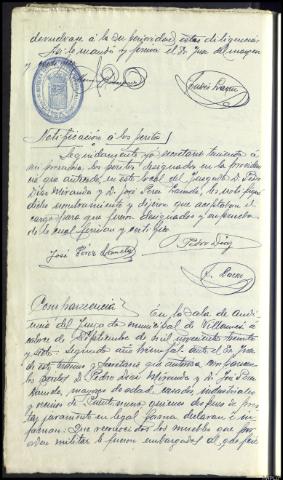 devuelvan á la Superioridad estas diligencias
Así lo mandó y firma el Sr. Juez del margen
y
Notificación á los peritos /
Seguidamente yó secretario teniendo á
mi presencia los peritos designados en la providen
cia que antecede, en este local del Juzgado D. Pedro
Díaz Miranda y D. José Pérez Ramudo, les notifiqué
dicho nombramiento y dijeron que aceptaban el
cargo para que fueron designados y en prueba
de lo cual firman y certifico
José Pérez Pedro Díaz
Comparecencia / En la Sala de audi
encia del Juzgado municipal de Villamea á
catorce de Septiembre de mil novecientos treinta
y siete = Segundo año triunfal = ante el Sr. Juez
de este término y Secretario que autoriza comparecen
los peritos D. Pedro Díaz Miranda y D. José Pérez
Ramudo, mayores de edad, casados, industriales
y vecinos de quienes despues de pres
tar juramento en legal forma declaran é in
forman: Que reconocidos los muebles que por
orden militar le fueron embargados al que fué